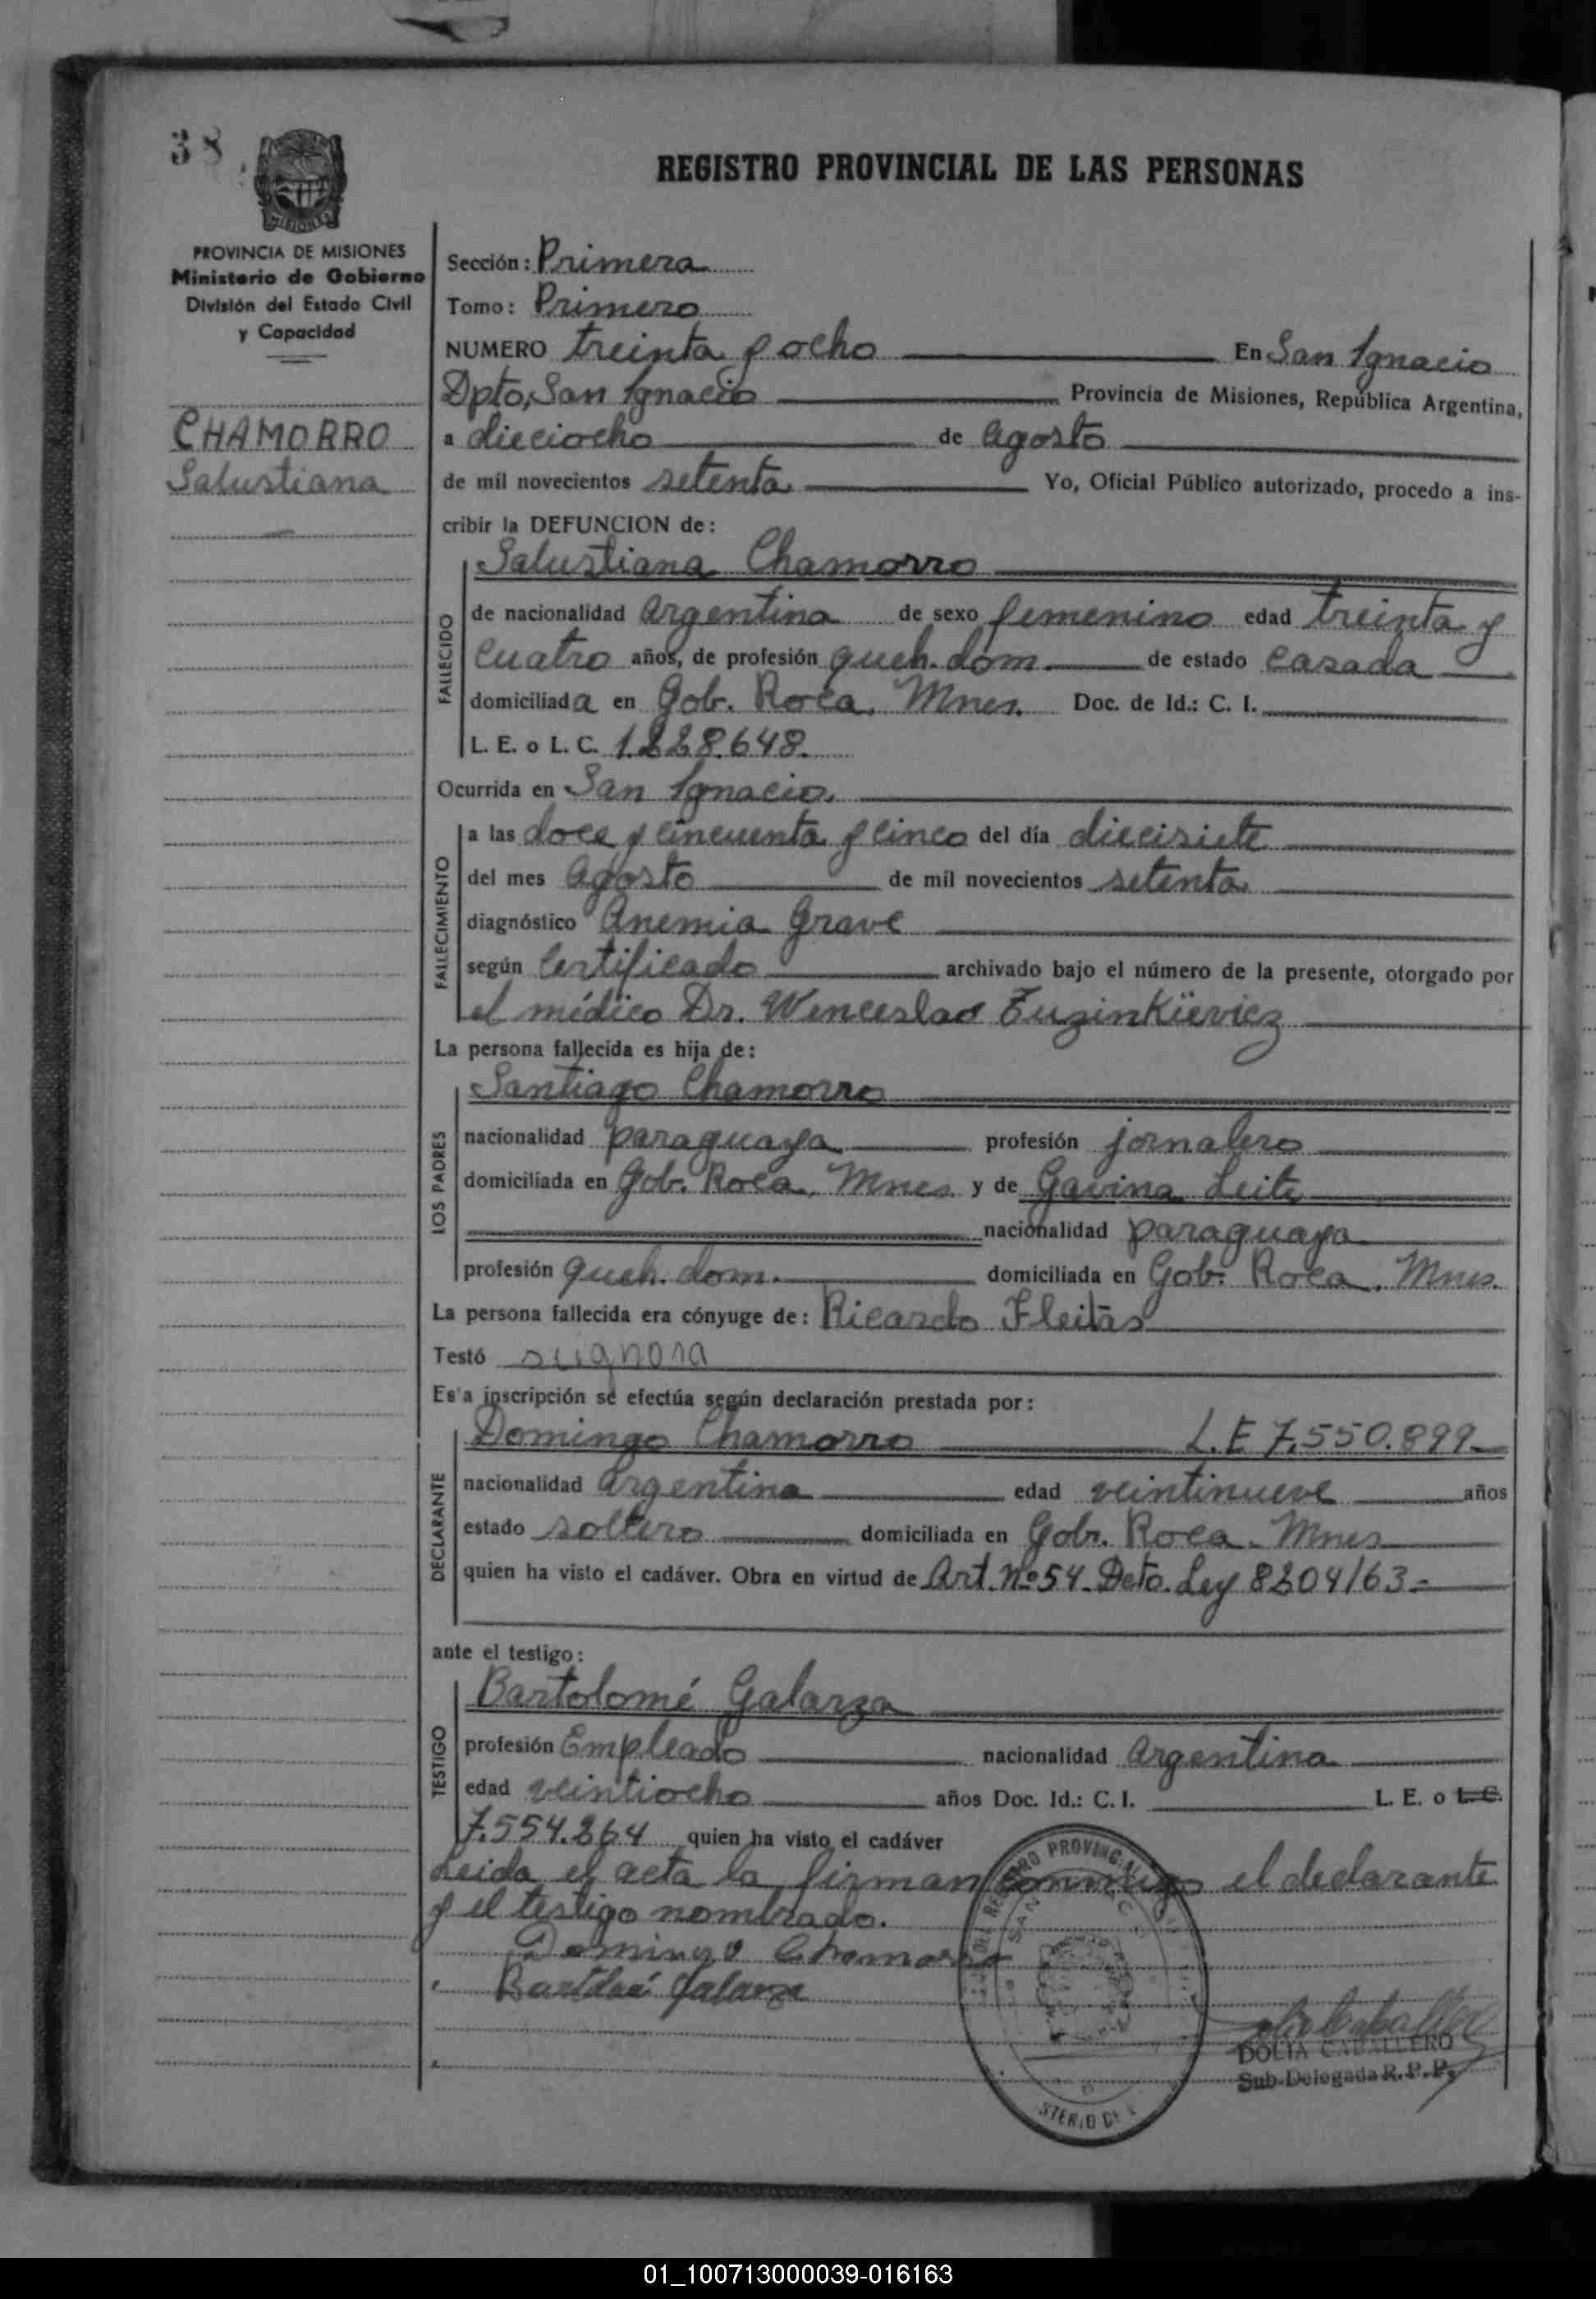 38
MISIONES
REGISTRO PROVINCIAL DE LAS PERSONAS
PROVINCIA DE MISIONES
Ministerio de Gobierno
División del Estado Civil
y Capacidad
CHAMORRO
Salustiana
Sección: Primera
Tomo: Primero
NUMERO treinta y ocho En San Ignacio
Dpto, San Ignacio Provincia de Misiones, República Argentina,
a dieciocho de Agosto
de mil novecientos setenta Yo, Oficial Público autorizado, procedo a ins-
cribir la DEFUNCION de:
FALLECIDO
Salustiana Chamorro
de nacionalidad Argentina de sexo femenino edad treinta y
cuatro años, de profesión queh. dom. de estado casada
domiciliada en Gob. Roca, Mnes. Doc. de Id.: C. I.
L. E. o L. C. 1.228.648.
Ocurrida en San Ignacio.
FALLECIMIENTO
a las doce y cincuenta y cinco del día diecisiete
del mes Agosto de mil novecientos setenta
diagnóstico Anemia Grave
según Certificado archivado bajo el número de la presente, otorgado por
el médico Dr. Wenceslao
La persona fallecida es hija de:
LOS PADRES
Santiago Chamorro
nacionalidad paraguaya profesión jornalero
domiciliada en Gob. Roca, Mnes y de Gavina Leite
nacionalidad paraguaya
profesión queh. dom. domiciliada en Gob. Roca, Mnes.
La persona fallecida era cónyuge de: Ricardo Fleitas
Testó se ignora
Esta inscripción se efectúa según declaración prestada por:
DECLARANTE
Domingo Chamorro L.E 7.550.899
nacionalidad Argentina edad veintinueve años
estado soltero domiciliada en Gob. Roca. Mnes
quien ha visto el cadáver. Obra en virtud de Art. Nº 54. Dcto. Ley 8204/63-
ante el testigo:
TESTIGO
Bartolomé Galarza
profesión Empleado nacionalidad Argentina
edad veintiocho años Doc. Id.: C. I. L. E. o L. C.
7.554.264 quien ha visto el cadáver
Leida el acta la firman conmigo el declarante
y el testigo nombrado.
Domingo Chamorro
Bartolomé Galarza
DOLIA CABALLERO
Sub-Delegada R. P. P.
01_100713000039-016163